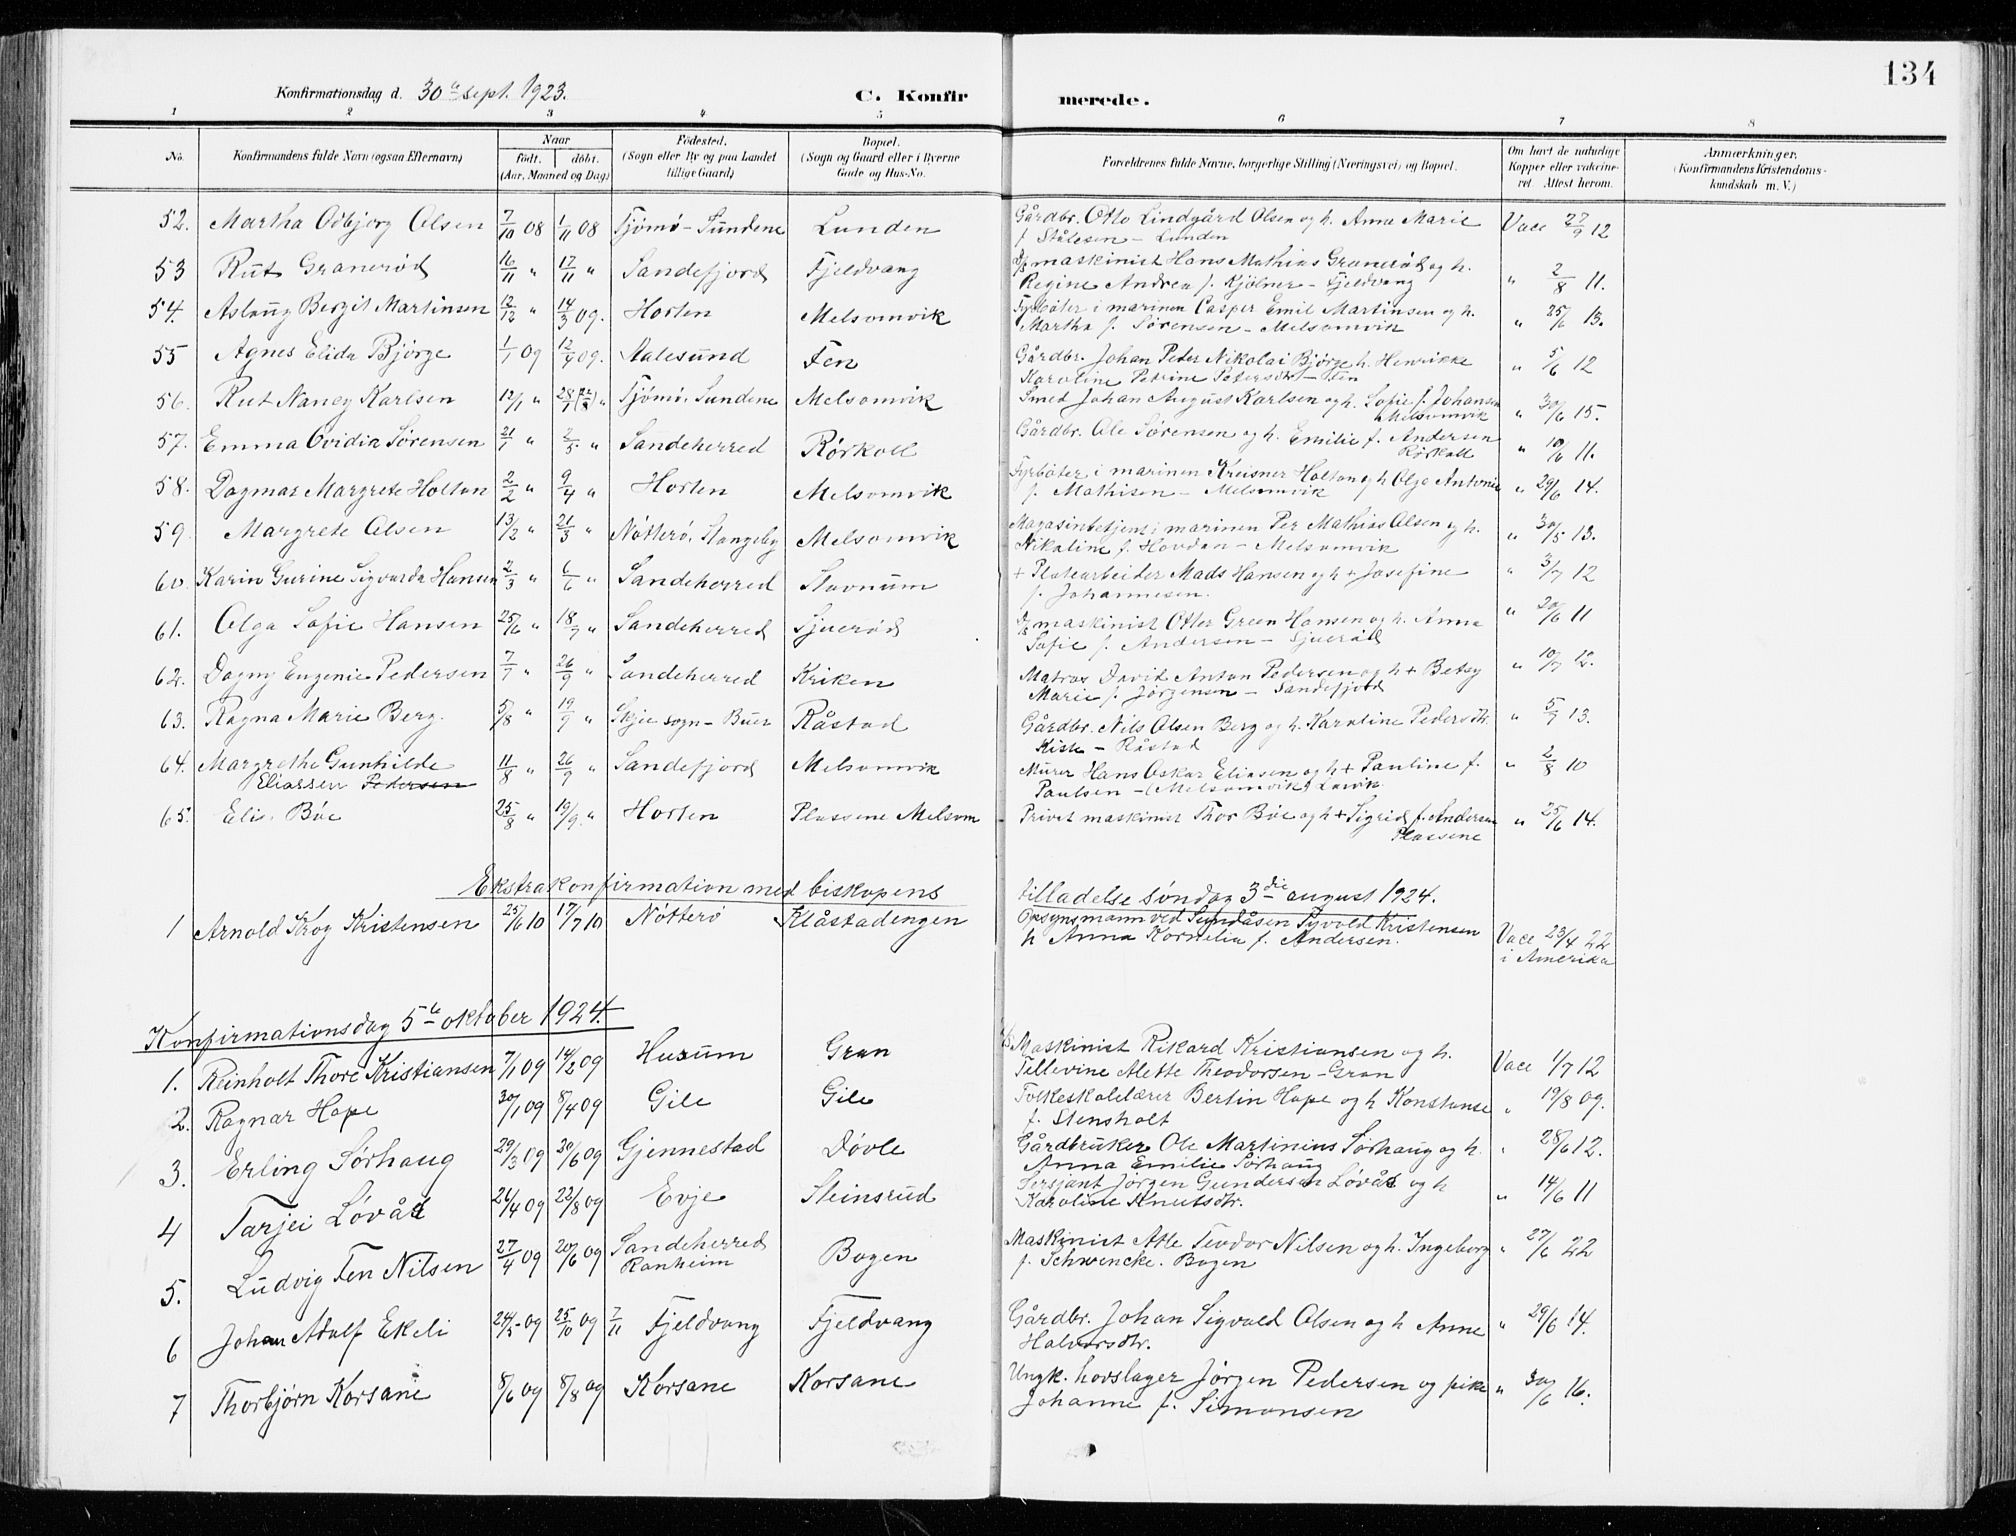 134
Konfirmationsdag d. 30te sept. 1923.
C. Konfirmerede.
1 2 3 4 5 6 7 8
No. Konfirmandens fulde Navn (ogsaa Efternavn) Naar født. døbt. (Aar, Maaned og Dag) Fødested. (Sogn eller By og paa Landet tillige Gaard) Bopæl. (Sogn og Gaard eller i Byerne Gade og Hus-No. Forældrenes fulde Navne, borgerlige Stilling (Næringsvei) og Bopæl. Om havt de naturlige Kopper eller vakcineret. Attest herom. Anmærkninger. (Konfirmandens Kristendomskundskab m. V.)
52. Martha Odbjørg Olsen 7/10 08 1/11 08 Tjømø - Sundene Lunden Gårdbr. Otto Lindgård Olsen og h. Anna Marie f. Stålesen - Lunden Vacc 27/9 12
53 Rut Granerød 16/11 " 17/11 " Sandefjord Fjeldvang maskinist Hans Mathias Granerød og h. Regine Andrea f. Kjølner - Fjeldvang " 2/8 11.
54. Aslaug Bergit Martinsen 12/12 " 14/3 09. Horten Melsomvik Fyrbøter i marinen Casper Emil Martinsen og h. Martha f. Sørensen - Melsomvik " 25/6 13.
55 Agnes Elida Bjørge 1/1 09 12/4 09. Aalesund Fen Gårdbr. Johan Peter Nikolai Bjørge h. Henrikke Karoline Petrine Petersdtr - Fen " 5/6 12
56. Rut Nancy Karlsen 12/1 " 28/1 " Tjømø, Sundene Melsomvik Smed Johan August Karlsen og h. Sofie f. Johansen Melsomvik " 30/6 15.
57. Emma Ovidia Sørensen 21/1 " 2/5 " Sandeherred Rørkoll Gårdbr. Ole Sørensen og h. Emilie f. Andersen Rørkoll " 10/6 11.
58. Dagmar Margrete Holton 2/2 " 9/4 " Horten Melsomvik Fyrbøter i marinen Kreisner Holton og h Olga Antonie f. Mathisen - Melsomvik " 29/6 14.
59. Margrete Olsen 13/2 " 21/3 " Nøtterø, Stangeby Melsomvik Magasinbetjent i marinen Per Mathias Olsen og h. Nikoline f. Hovdan - Melsomvik " 30/5 13.
60. Karin Gurine Sigvarda Hansen 2/3 " 6/6 " Sandeherred Stavnum + Platearbeider Mads Hansen og h + Josefine f. Johannesen. " 3/7 12
61. Olga Sofie Hansen 25/6 " 18/7 " Sandeherred Gjuerød maskinist Otter Green Hansen og h. Anna Sofie f. Andersen - Gjuerød " 20/6 11
62. Dagny Eugenie Pedersen 7/7 " 26/9 " Sandeherred Kriken Matros David Anton Pedersen og h + Betsy Marie f. Jørgensen - Sandefjord " 10/7 12.
63. Ragna Marie Berg. 5/8 " 19/9 " Skjee sogn - Buer Råstad Gårdbr. Nils Olsen Berg og h. Karoline Pedersdtr. Kiste - Råstad " 5/7 13.
64. Margrethe Gunhilde Eliassen Pedersen 11/8 " 26/9 " Sandefjord Melsomvik Murer Hans Oskar Eliasen og h + Pauline f. Paulsen - (Melsomvik) Larvik " 2/8 10
65. Elis. Bøe 25/8 " 19/9. " Horten Plassene Melsom Privat maskinist Thor Bøe og h + Sigrid f. Andersen Plassene " 25/6 14.
Ekstrakonfirmation med biskopens tilladelse søndag 3die august 1924.
1 Arnold Krog Kristensen 25/6 10 17/7 10 Nøtterø Klåstadengen Opsynsmann ved Sundåsen Sigvald Kristensen h Anna Kornelia f. Andersen. Vacc 23/4 22 i Amerika
Konfirmationsdag 5te oktober 1924.
1. Reinholt Thore Kristiansen 7/1 09 14/2 09 Husum Gran Maskinist Rikard Kristiansen og h. Tellevine Alette Theodorsen - Gran Vacc 1/7 12
2. Ragnar Hope 30/1 09 8/4 09 Gile Gile Folkeskolelærer Bertin Hope og h Konstanse f. Stensholt " 19/8 09.
3. Erling Sørhaug 29/3 09 20/6 09 Gjennestad Døvle Gårdbruker Ole Martinius Sørhaug og h. Anna Emilie Sørhaug " 28/6 12.
4 Tarjei Løvås 21/4 09 22/8 09 Evje Steinsrud Sersjant Jørgen Gundersen Løvås og h Karoline Knutsdtr. " 14/6 11
5. Ludvig Fen Nilsen 27/4 09 20/6 09 Sandeherred Ranheim Bogen Maskinist Atle Teodor Nilsen og h. Ingeborg f. Schwencke. Bogen " 27/6 22
6 Johan Adolf Ekeli 24/5 09 25/10 09 7/11 Fjeldvang Fjeldvang Gårdbr. Johan Sigvald Olsen og h Anne Halvorsdtr. " 29/6 14.
7 Thorbjørn Korsane 8/6 09 8/8 09 Korsane Korsane Ungk. hovslager Jørgen Pedersen og pike Johanne f. Simonsen " 30/6 16.